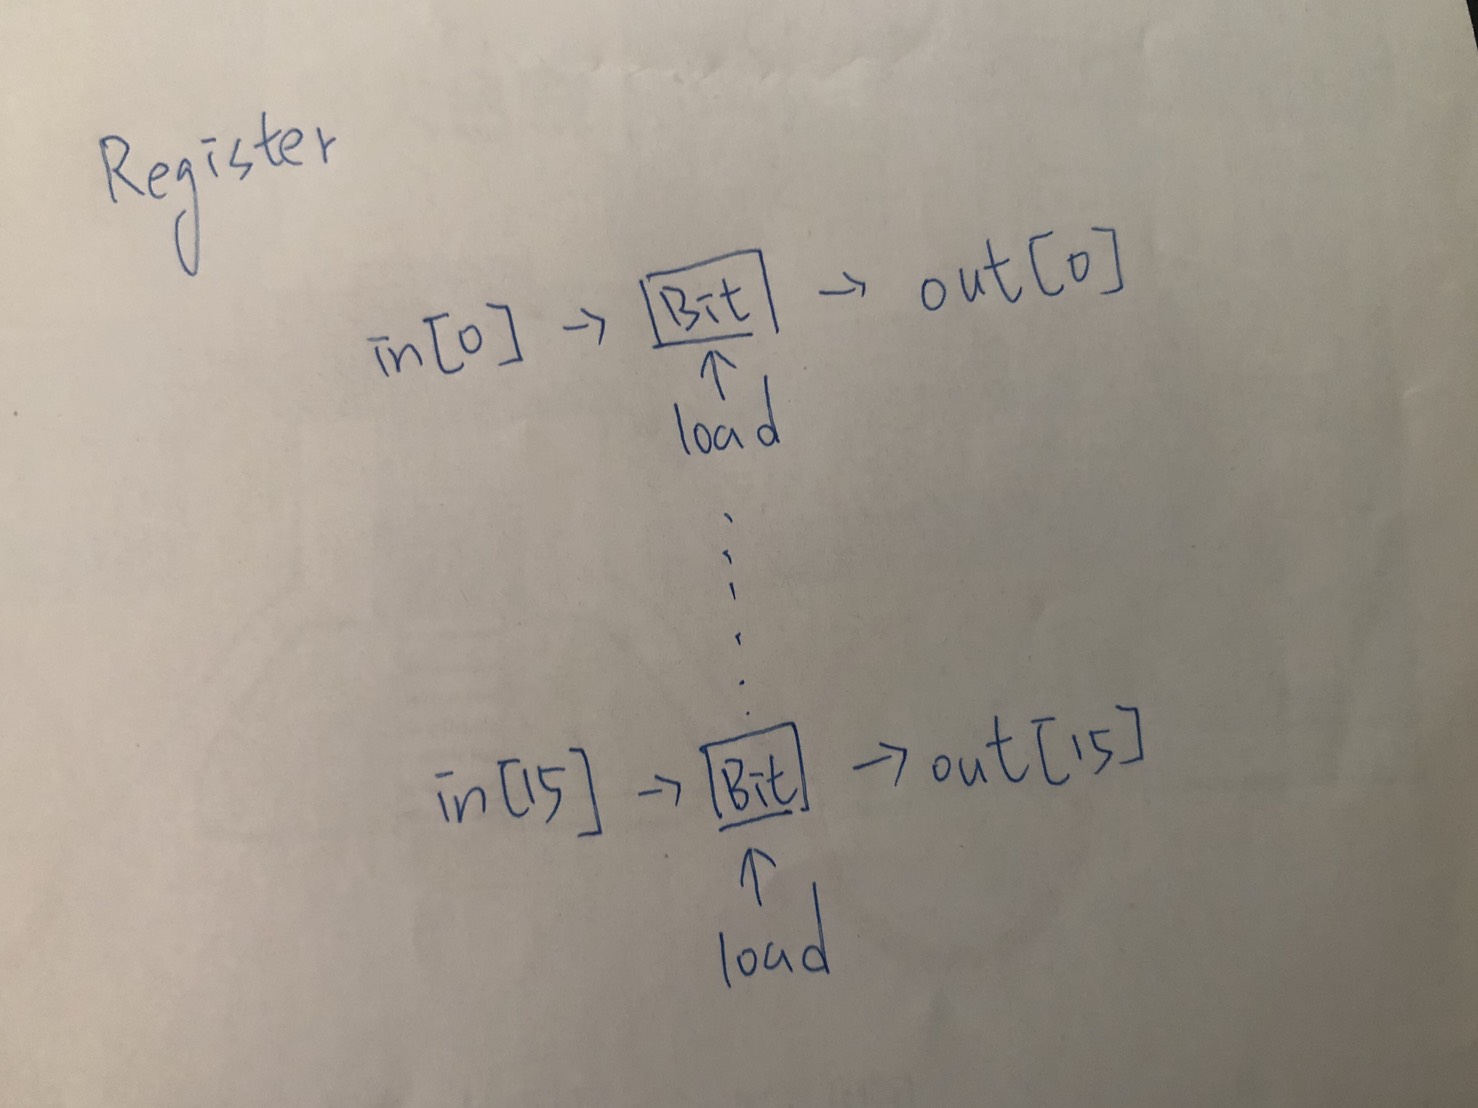 Register
in[0] → Bit → out[0]
↑
load
in[15] → Bit → out[15]
↑
load